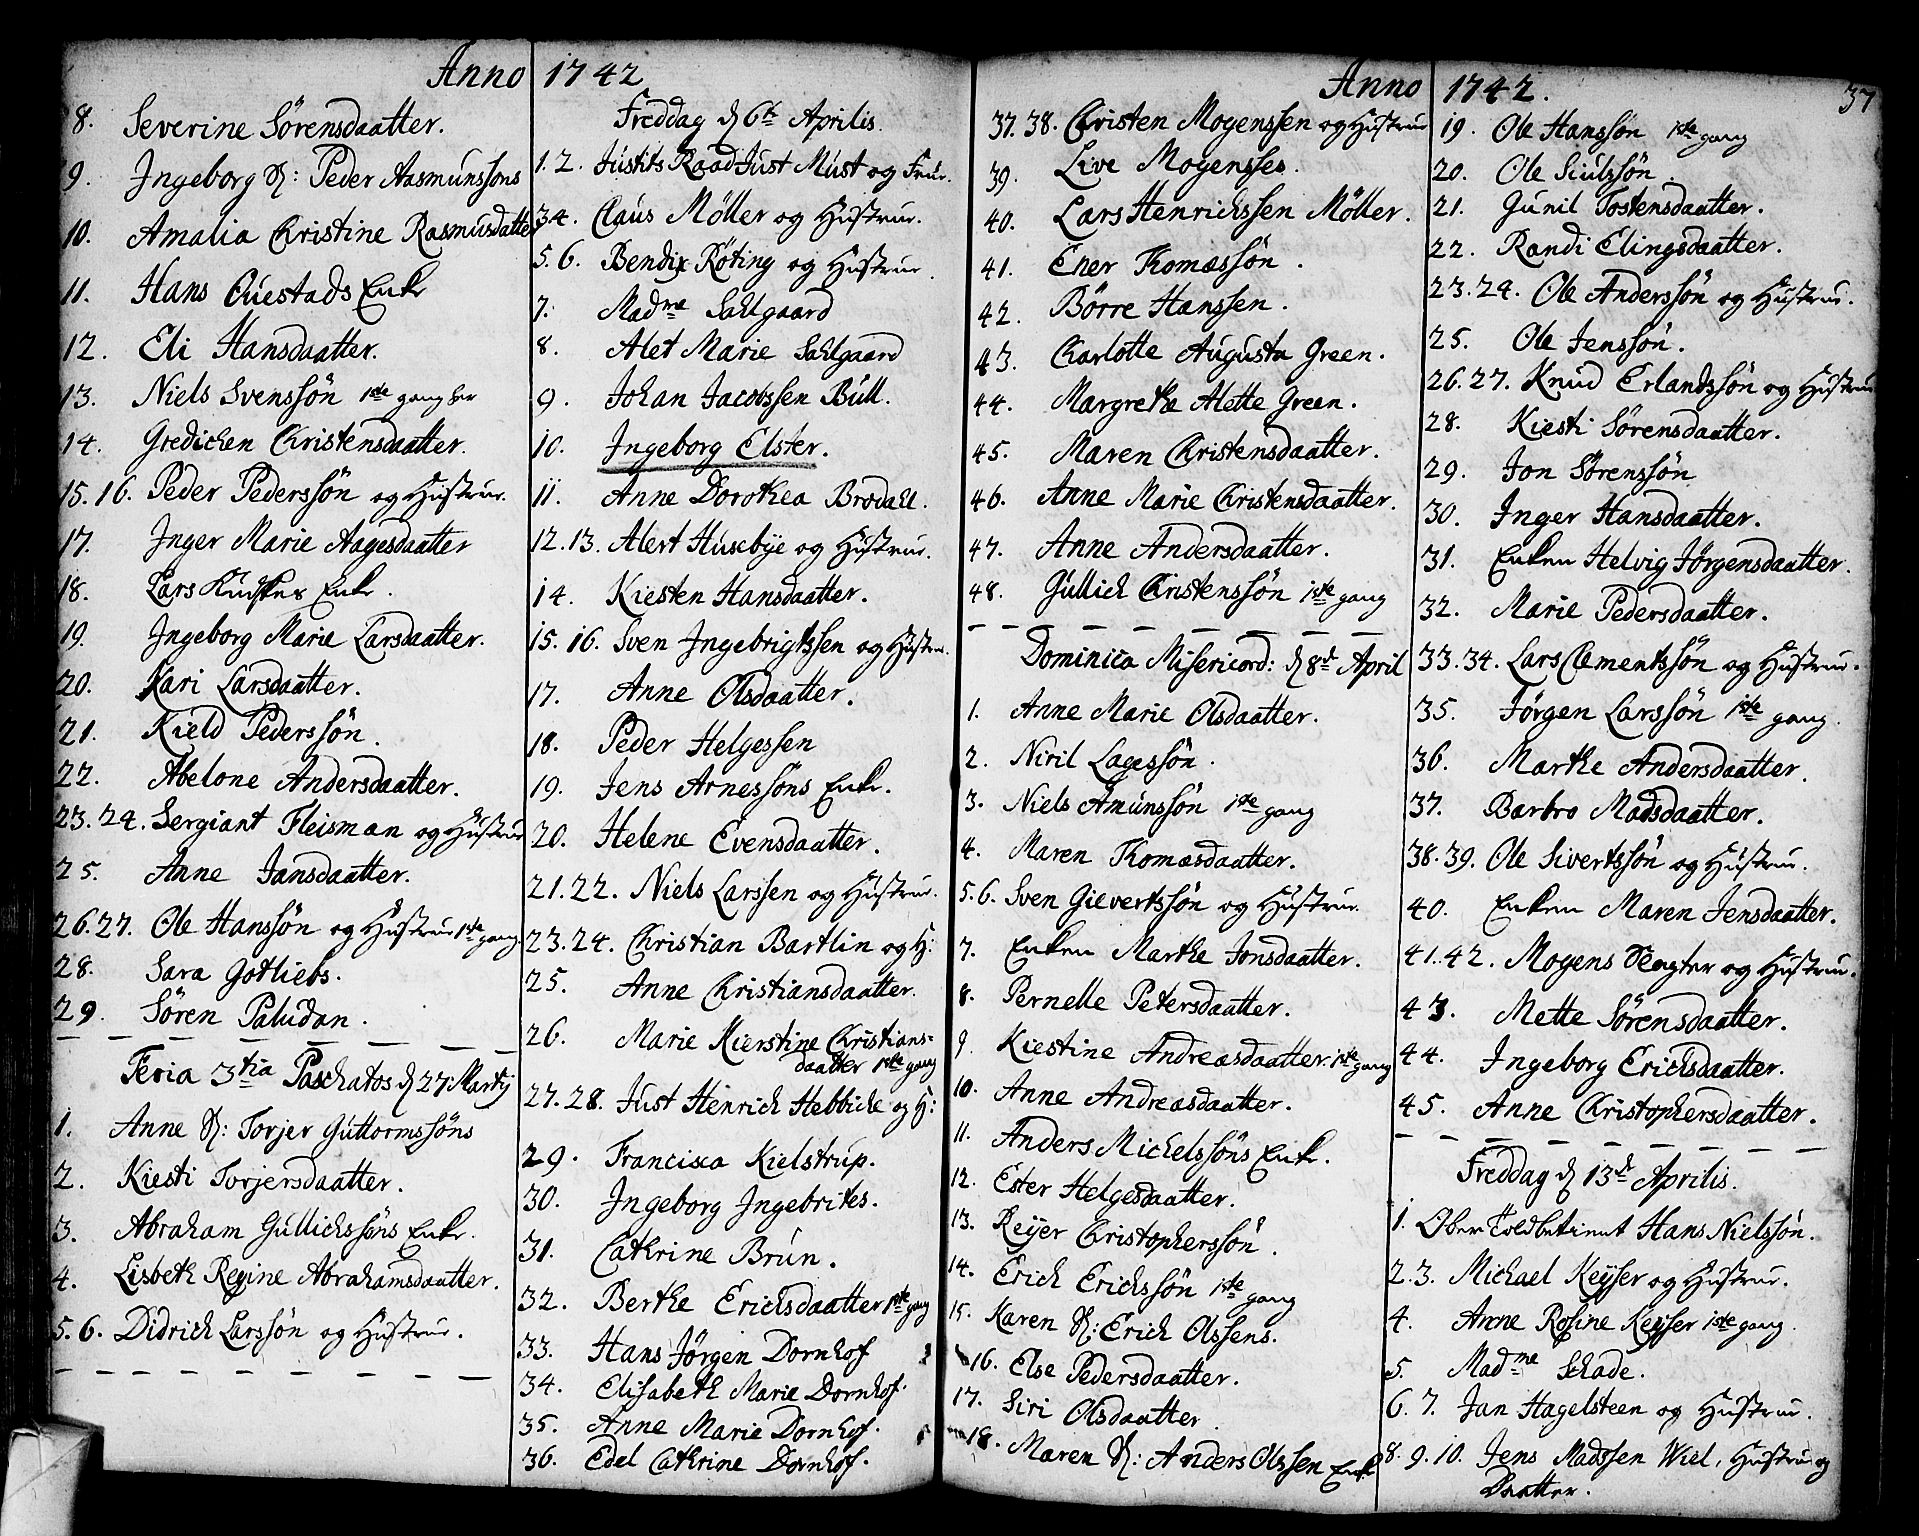 Anno 1742
8. Severine Sörensdaatter.
9. Ingeborg S: Peder Aasmunssons
10. Amalia Christine Rasmusdatter
11. Hans Questads Enke
12. Eli Hansdaatter.
13. Niels Svenssön 1ste gang her
14. Gredichen Christensdaatter.
15. 16. Peder Pederssön og Hustrue.
17. Inger Marie Aagesdaatter
18. Lars Enke.
19. Ingeborg Marie Larsdaatter.
20. Kari Larsdaatter.
21. Kield Pederssön.
22. Abelone Andersdaatter.
23. 24. Sergiant Fleisman og Hustrue
25. Anne Jansdaatter.
26. 27. Ole Hanssön og Hustrue 1ste gang
28. Sara Gotliebs.
29. Sören Paludan.
Feria 3tia Paschatos d 27: Martij
1. Anne S: Torjer Guttormssöns
2. Kiesti Torjersdaatter.
3. Abraham Gullichssöns Enke.
4. Lisbeth Regine Abrahamsdaatter.
5. 6. Didrich Larssön og Hustrue.
Freddag d 6te Aprilis.
1. 2. Justits Raad Just Must og Frue.
3 4. Claus Möller og Hustrue.
5. 6. Bendix Röting og Hustrue.
7. Madme Sahlgaard
8. Alet Marie Sahlgaard
9. Johan Jacobssen Bull.
10. Ingeborg Elster.
11. Anne Dorothea Brodahl.
12. 13. Alert Husebye og Hustrue.
14. Kiesten Hansdaatter.
15. 16. Sven Ingebrigtssen og Hustrue.
17. Anne Olsdaatter.
18. Peder Helgessen
19. Jens Arnessöns Enke.
20. Helene Evensdaatter.
21. 22. Niels Larssen og Hustrue.
23. 24. Christian Bartlin og H:
25. Anne Christiansdaatter.
26. Marie Kierstine Christians=
daatter 1ste gang
27. 28. Just Henrich Hebbiche og H:
29. Francisca Kielstrup.
30. Ingeborg Ingebrites.
31. Cathrine Brun.
32. Berthe Erichsdaatter 1ste gang
33. Hans Jörgen Dornhof
34. Elisabeth Marie Dornhof.
35. Anne Marie Dornhof.
36. Edel Cathrine Dornhof.
Anno 1742.
37
37. 38. Christen Mogenssen og Hustrue
39. Live Mogenses.
40. Lars Henrichssen Möller.
41. Ener Thomassön.
42. Börre Hanssen.
43. Charlotte Augusta Green.
44. Margrethe Alette Green.
45. Maren Christensdaatter.
46. Anne Marie Christensdaatter.
47. Anne Andersdaatter.
48. Gullich Christenssön 1ste gang
Dominica Misericord: d 8de April
1. Anne Marie Olsdaatter.
2. Niril Lagessön.
3. Niels Amunssön 1ste gang
4. Maren Thomasdaatter.
5. 6. Sven Gievertssön og Hustrue.
7. Enken Marthe Jonsdaatter.
8. Pernelle Petersdaatter.
9. Kiestine Andreasdaatter. 1ste gang
10. Anne Andreasdaatter.
11. Anders Michelssöns Enke.
12. Ester Helgesdaatter.
13. Reyer Christopherssön.
14. Erich Erichssön 1ste gang
15. Karen S: Erich Olssens.
16. Else Pedersdaatter.
17. Siri Olsdaatter
18. Maren S: Anders Olssen Enke
19. Ole Hanssön 1ste gang
20. Ole Siulssön.
21. Gunil Tostensdaatter.
22. Randi Elingsdaatter.
23. 24. Ole Anderssön og Hustrue.
25. Ole Jenssön.
26. 27. Knud Erlandssön og Hustrue
28. Kiesti Sörensdaatter.
29. Jon Sörenssön
30. Inger Hansdaatter.
31. Enken Helvig Jörgensdaatter.
32. Marie Pedersdaatter.
33. 34. Lars Clementssön og Hustrue.
35. Jörgen Larssön 1ste gang.
36. Marthe Andersdaatter.
37. Barbro Madsdaatter.
38. 39. Ole Sivertssön og Hustrue.
40. Enken Maren Jensdaatter.
41. 42. Mogens og Hustrue.
43. Mette Sörensdaatter.
44. Ingeborg Erichsdaatter.
45. Anne Christophersdaatter.
Freddag d 13de Aprilis.
1. Ober Toldbetient Hans Nielssön.
2. 3. Michael Keyser og Hustrue.
4. Anne Rosine Keyser 1ste gang.
5. Madme Schade.
6. 7. Jan Hagelsteen og Hustrue.
8. 9. 10. Jens Madssen Wiel, Hustrue og
Daatter.